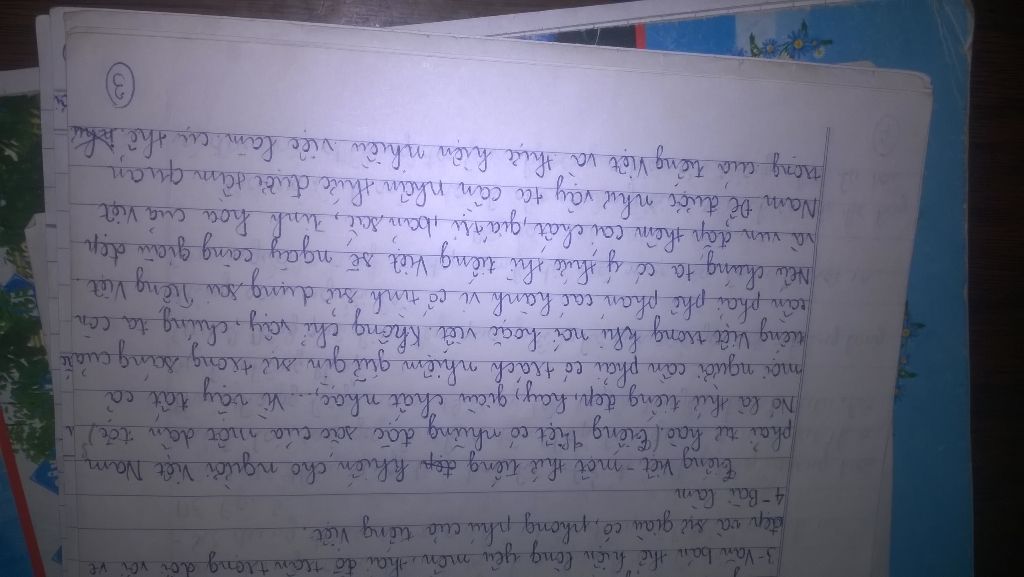 3- Văn bản thể hiện lòng yêu mến, thái độ trân trọng đối với vẻ
đẹp và sự giàu có, phong phú của tiếng Việt.
4- Bài làm
Tiếng Việt - một thứ tiếng đẹp khiến cho người Việt Nam
phải tự hào. (Tiếng Việt có những đặc sắc của một dân tộc)
Nó là thứ tiếng đẹp, hay, giàu chất nhạc,... Vì vậy tất cả
mọi người cần phải có trách nhiệm giữ gìn sự trong sáng của
tiếng Việt trong khi nói hoặc viết. Không chỉ vậy, chúng ta còn
cần phải phê phán các hành vi cố tình sử dụng sai Tiếng Việt.
Nếu chúng ta có ý thức thì tiếng Việt sẽ ngày càng giàu đẹp
và vun đắp thêm cái chất, giá trị, bản sắc, tinh hoa của Việt
Nam. Để được như vậy ta cần nhận thức được tầm quan
trọng của tiếng Việt và thực hiện nhiều việc làm cụ thể như
3